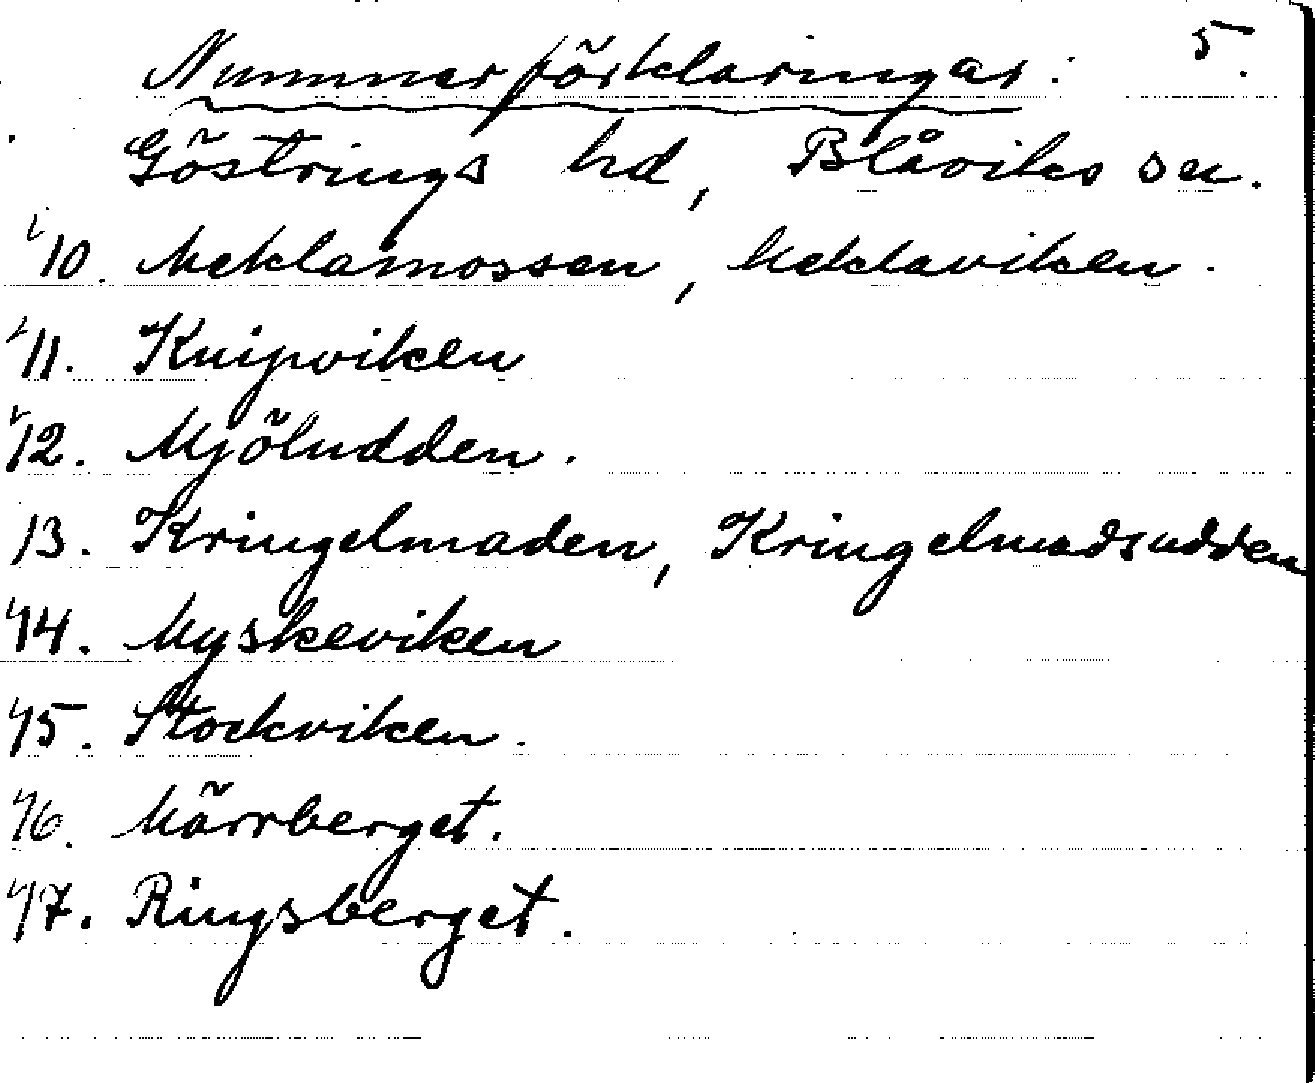 Nummerförklaringar: 5.
Göstrings hd, Blåviks sn.
10. Meklamossen, Meklaviken.
11. Knipviken
12. Mjöludden.
13. Kringelmaden, Kringelmadsudden
14. Myskeviken
15. Stockviken.
16. Märrberget.
17. Ringsberget.